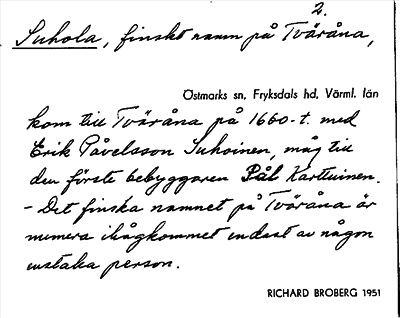 2.
Suhola, finskt namn på Tväråna,
Östmarks sn, Fryksdals hd, Värml. län
kom till Tväråna på 1660-t. med
Erik Påvelsson Suhoinen, måg till
den förste bebyggaren Pål Karttuinen.
- Det finska namnet på Tväråna är
numera ihågkommet endast av någon
enstaka person.
RICHARD BROBERG 1951